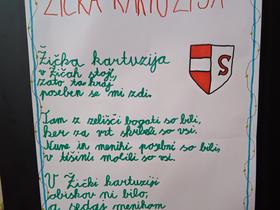 ŽIČKA KARTUZIJA
Žička kartuzija
v Žičah stoji,
zato ta kraj,
poseben se mi zdi.
S
Tam z zelišči bogati so bili,
ker za vrt skrbeli so vsi.
Kune in menihi posebni so bili,
v tišini molili so vsi.
V Žički kartuziji
obiskov ni bilo,
a sedaj menihom